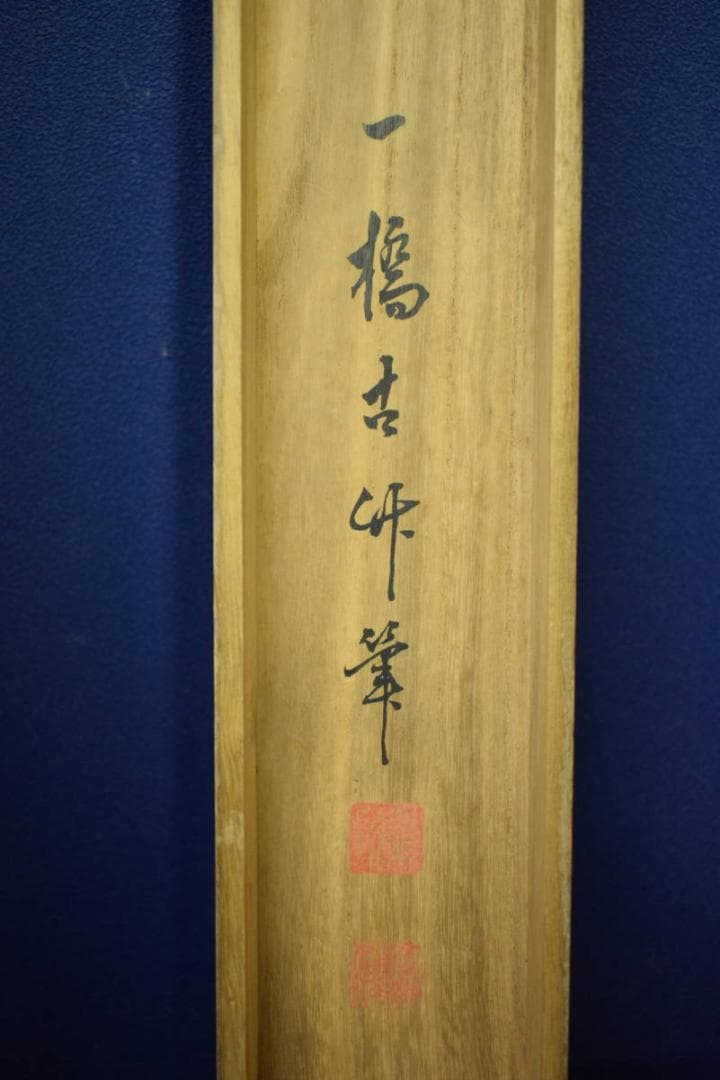 一橋古竹筆